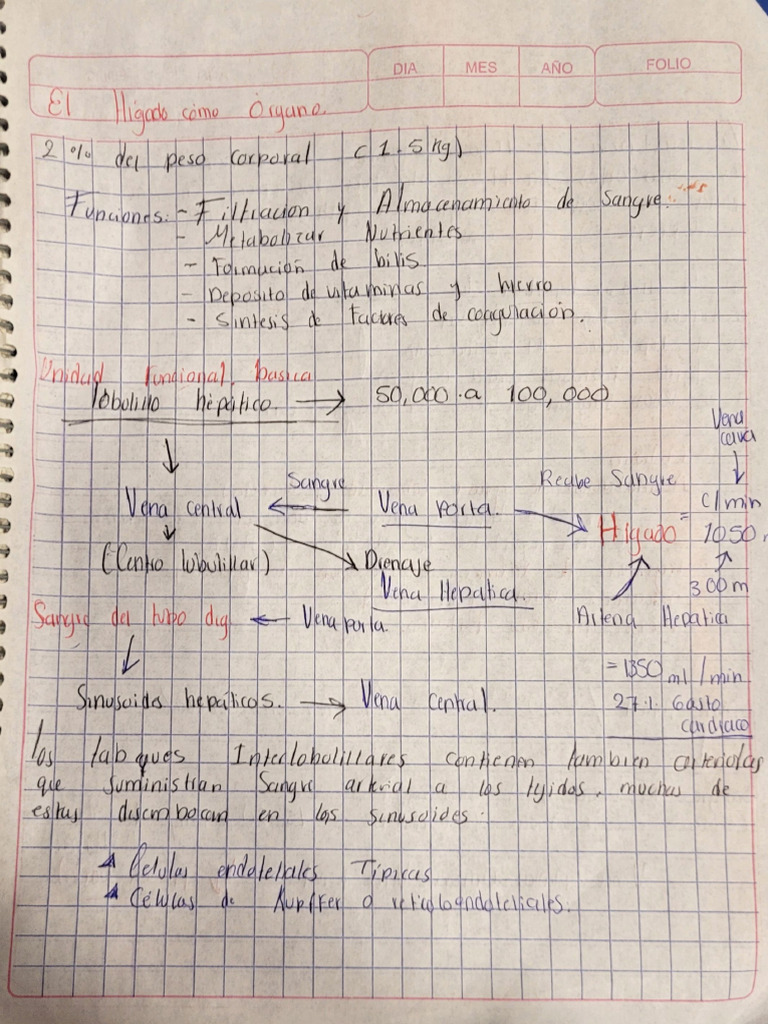 DIA MES AÑO FOLIO
El Hígado como Órgano.
2 % del peso corporal (1.5 kg)
Funciones: - Filtración y Almacenamiento de Sangre.
- Metabolizar Nutrientes
- Formación de bilis
- Deposito de vitaminas y hierro
- Sintesis de factores de coagulación.
Unidad funcional basica
lobolillo hepático. → 50,000 a 100,000
Vena
cava
↓
↓ Sangre Recibe Sangre c/min
Vena central ← Vena porta. → Hígado = 1050
↓
(Centro lobulillar) Drenaje
Vena Hepática. 300 m
Sangre del tubo dig ← Vena porta. Arteria Hepatica
↓ = 1350 ml/min
Sinusoides hepáticos. → Vena Central. 27% Gasto
cardiaco
los tabques Interlobolillares contienen tambien arteriolas
que suministran Sangre arterial a los tejidos, muchas de
estas disembocan en los sinusoides.
Celulas endoteliales Típicas
Células de Kupffer o reticoloendoteliales.